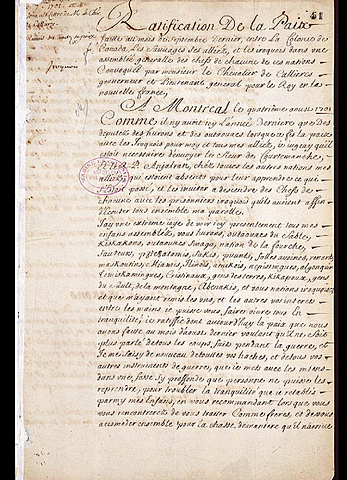 51
Ratification De la Paix
faitte au mois de septembre dernier, entre La Colonie de
Canada, Les Sauvages ses alliéz, et les iroquois dans une
assemblée generalle des chefs de chacune de ces nations
Convoquée par monsieur le Chevalier de Callieres
gouverneur et Lieutenant general pour le Roy en la
nouvelle france,
A Montreal le quatriéme aoust 1701
Comme il n'y avoit icy l'année derniere que des
deputéz des hurons et des outaouacs lorsque je fis la paix
avec les Iroquois pour moy et tous mes alliéz, je jugeay qu'il
estoit necessaire d'envoyer le Sieur de Courtemanche,
et le R. P. Anjalran, chéz toutes les autres nations mes
alliéz qui estoient absents pour leur apprendre ce qui
s'estoit passé, et les inviter a descendre des chefs de
chacune avec les prisonniers iroquois qu'ils avoient affin
d'écouter tous ensemble ma parolle.
J'ay une extreme joye de voir icy presentement tous mes
enfans assemblez, vous hurons, outaouacs du Sable,
Kiskakons, outaouacs Sinago, nation de la fourche,
Sauteurs, poutouatamis, Sakis, puants, folles avoines, renards,
maskoutins, Miamis, Ilinois, amikois, nepissingues, algonquins,
Temiskamingues, Cristinaux, gens des terres, Kikapoux, gens
du Sault, de la montagne, Abenakis, et vous nations iroquoises
et que m'ayant remis les uns et les autres vos interets
entre les mains je puisse vous faire vivre tous en
tranquilité; je ratiffie donc aujourd'huy la paix que nous
avons faitte au mois d'aoust dernier voulant qu'il ne soit
plus parlé de tous les coups faits pendant la guerre, et
Je me saisy de nouveau de toutes vos haches, et de tous vos
autres instruments de guerre, que je mets avec les miens
dans une fosse sy profonde que personne ne puisse les
reprendre, pour troubler la tranquilité que je retablis
parmy mes Enfans, en vous recommandant lorsque vous
vous rencontrerez de vous traitter comme freres, et de vous
accomoder ensemble pour la chasse, de maniere qu'il n'arrive